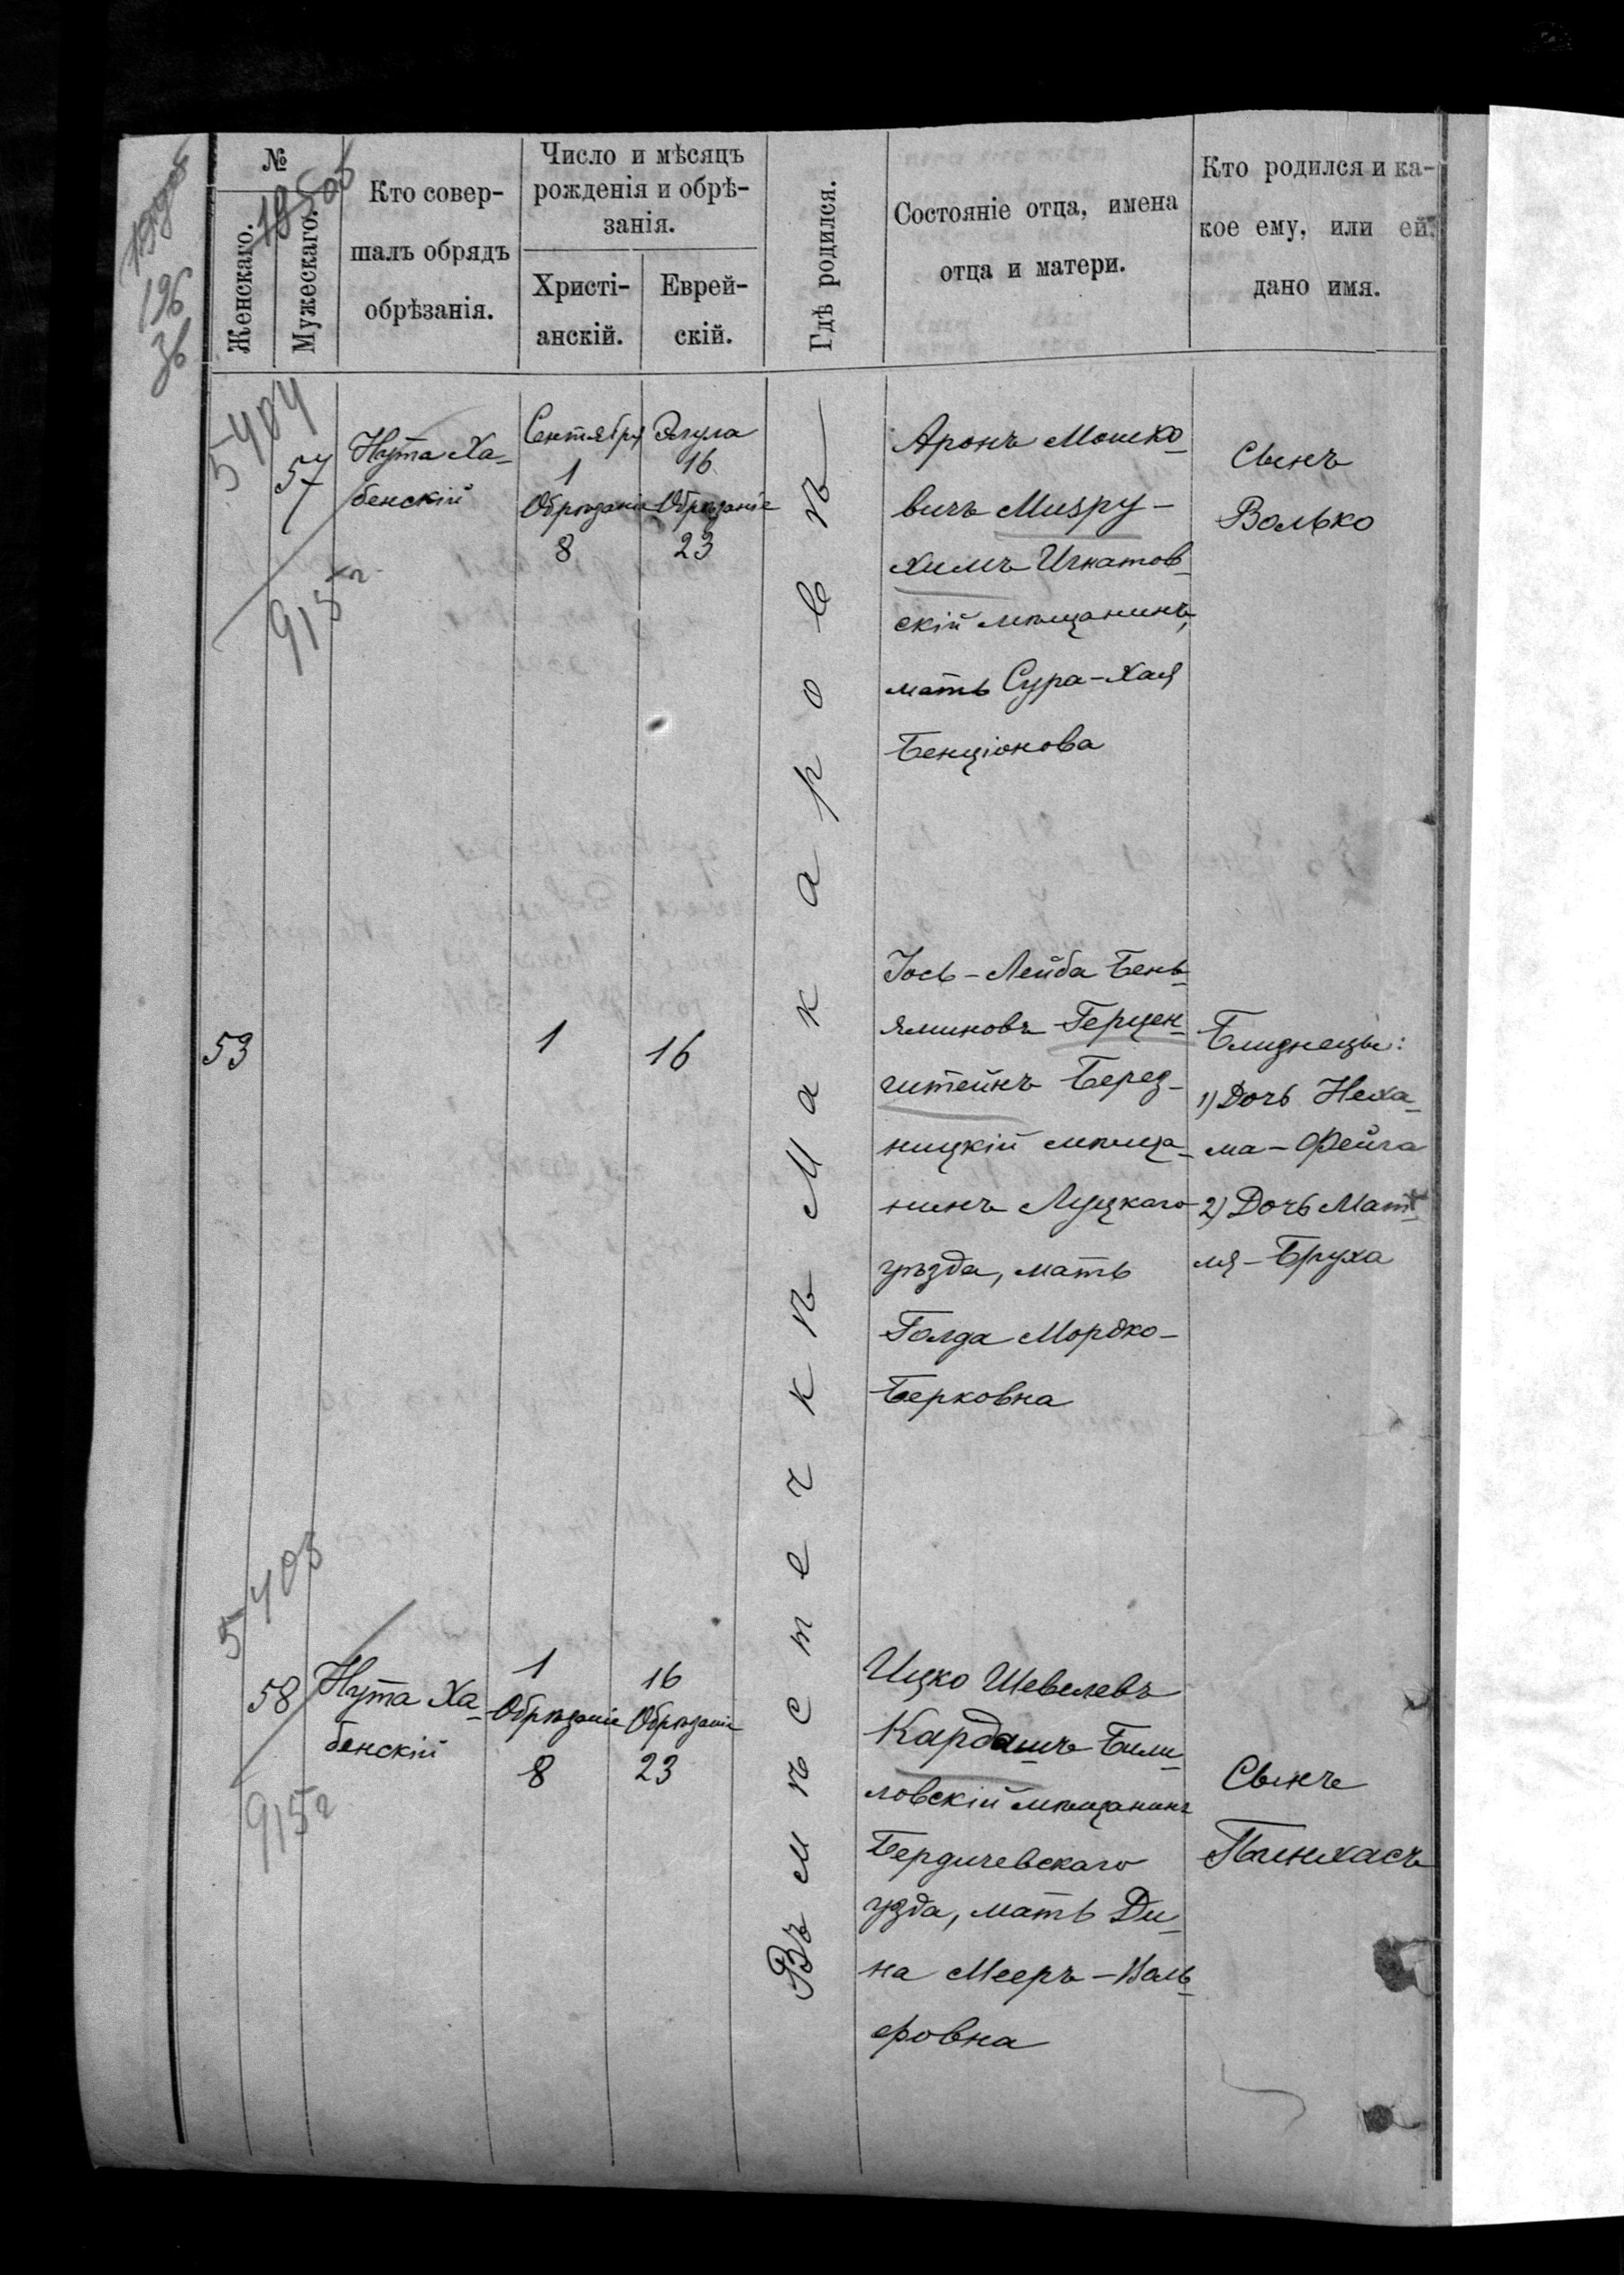 №
Женскаго.
Мужескаго.
Кто совер-
шалъ обрядъ
обрѣзанія.
Число и мѣсяцъ
рожденія и обрѣ-
занія.
Христі-
анскій.
Еврей-
скій.
Гдѣ родился.
Состояніе отца, имена
отца и матери.
Кто родился и ка-
кое ему, или ей
дано имя.
196
5404
57
915 г
Нута Ха-
бенскій
Сентября
1
Обрѣзаніе
8
Элула
16
Обрѣзаніе
23
Въ мѣстечкѣ Макаровѣ
Аронъ Мошко-
вичъ Мизру-
химъ Игнатов-
скій мѣщанинъ,
мать Сура-Хая
Бенціонова
Сынъ
Волько
53
1
16
Іось-Лейба Бень-
яминовъ Герцен-
штейнъ Берез-
ницкій мѣща-
нинъ Луцкаго
уѣзда, мать
Голда Мордко-
Берковна
Близнецы:
1) Дочь Неха-
ма-Фейга
2) Дочь Мат-
ля-Бруха
5403
58
915 г
Нута Ха-
бенскій
1
Обрѣзаніе
8
16
Обрѣзаніе
23
Ицко Шевелевъ
Кардашъ Били-
ловскій мѣщанинъ
Бердичевскаго
уѣзда, мать Ди-
на Мееръ-Воль-
фовна
Сынъ
Пинхасъ